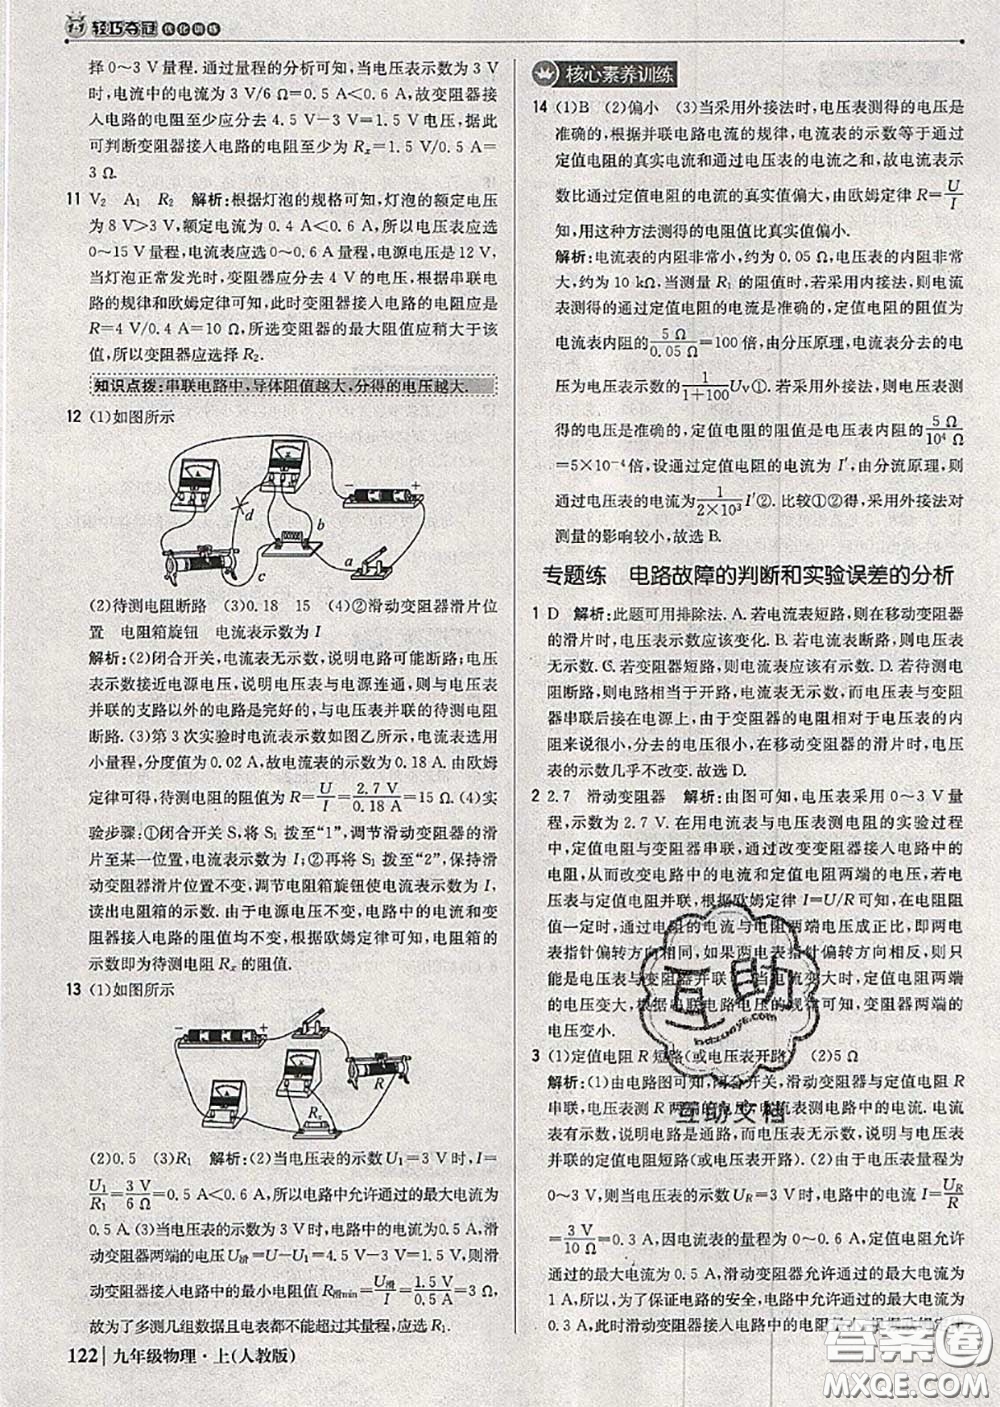 1+1 轻巧夺冠 优化训练
择 0～3 V 量程. 通过量程的分析可知, 当电压表示数为 3 V
时, 电流中的电流为 3 V/6 Ω=0.5 A<0.6 A, 此时变阻器接
入电路的电阻至少应分去 4.5 V-3 V=1.5 V 的电压, 据此
可判断变阻器接入电路的电阻至少为 Rx=1.5 V/0.5 A=
3 Ω.
11 V₂ A₁ R₂ 解析:根据灯泡的规格可知, 灯泡的额定电压
为 8 V>3 V, 额定电流为 0.4 A<0.6 A, 所以电压表应选
0～15 V 量程, 电流表应选 0～0.6 A 量程, 电源电压是 12 V,
当灯泡正常发光时, 变阻器应分去 4 V 的电压, 根据串联电
路的规律和欧姆定律可知, 此时变阻器接入电路的电阻应是
R=4 V/0.4 A=10 Ω, 所选变阻器的最大阻值应稍大于该
值, 所以变阻器应选择 R₂.
知识点拨:串联电路中, 导体阻值越大, 分得的电压越大.
12 (1)如图所示
A V + − d b a c
(2)待测电阻断路 (3)0.18 15 (4)②滑动变阻器滑片位
置 电阻箱旋钮 电流表示数为 I
解析:(2)闭合开关, 电流表无示数, 说明电路可能断路; 电压
表示数接近电源电压, 说明电压表与电源连通, 则与电压表
并联的支路以外的电路是完好的, 与电压表并联的待测电阻
断路. (3)第 3 次实验时电流表示数如图乙所示, 电流表选用
小量程, 分度值为 0.02 A, 故电流表示数为 0.18 A. 由欧姆
定律可得, 待测电阻的阻值为 R=U/I=2.7 V/0.18 A=15 Ω. (4)实
验步骤:①闭合开关 S, 将 S₁ 拨至“1”, 调节滑动变阻器的滑
片至合适位置, 电流表示数为 I; ②再将 S₁ 拨至“2”, 保持滑
动变阻器滑片位置不变, 调节电阻箱旋钮使电流表示数为 I,
读出电阻箱的示数. 由于电源电压不变, 电路中的电流和变
阻器的阻值均不变, 根据欧姆定律可知, 电阻箱的
示数即为待测电阻 Rx 的阻值.
13 (1)如图所示
− + R Rx
(2)0.5 (3)R₁ 解析:(2)当电压表的示数 U₁=3 V 时, I=
U₁/R₁=3 V/6 Ω=0.5 A<0.6 A, 所以电路中允许通过的最大电流为
0.5 A. (3)当电压表的示数为 3 V 时, 电路中的电流为 0.5 A, 滑
动变阻器两端的电压 U滑=U-U₁=4.5 V-3 V=1.5 V, 则滑
动变阻器接入电路中的最小阻值 R滑min=U滑/I=1.5 V/0.5 A=3 Ω,
故为了多测几组数据且电表都不能超过其量程, 应选 R₁.
122 九年级物理·上(人教版)
核心素养训练
14 (1)B (2)偏小 (3)当采用外接法时, 电压表测得的电压是
准确的, 根据并联电路电流的规律, 电流表的示数等于通过
定值电阻的真实电流和通过电压表的电流之和, 故电流表示
数比通过定值电阻的电流的真实值偏大, 由欧姆定律 R=U/I
可知, 用这种方法测得的电阻值比真实值偏小.
解析:电流表的内阻非常小, 约为 0.05 Ω, 电压表的内阻非
常大, 约为 10 kΩ, 当测量 R₁ 的阻值时, 若采用内接法, 电流
表测得的电流为通过定值电阻的电流, 定值电阻的阻值为
电流表内阻的 5 Ω/0.05 Ω=100 倍, 由分压原理, 电流表分去的电
压为电压表示数的 1/(1+100)Uv①. 若采用外接法, 则电压表测
得的电压是准确的, 定值电阻的阻值是电压表内阻的 5 Ω/10⁴ Ω
=5×10⁻⁴倍, 设通过定值电阻的电流为 I′, 由分流原理, 则
通过电压表的电流为 1/(2×10³) I′②. 比较①②可得, 采用外接法对
测量的影响较小, 故选 B.
专题练 电路故障的判断和实验误差的分析
1 D 解析:此题可用排除法. A. 若电流表短路, 则在移动变阻器
的滑片时, 电压表示数应该变化. B. 若电流表断路, 则电压表
无示数. C. 若变阻器短路, 则电流表应该有示数. D. 若待测电
阻断路, 则电阻相当于开路, 电流表无示数, 而电压表与变阻
器串联后接在电源上, 由于变阻器的电阻相对于电压表的内
阻来说很小, 分去的电压很小, 在移动变阻器的滑片时, 电压
表的示数几乎不改变. 故选 D.
2 2.7 滑动变阻器 解析:由图可知, 电压表采用 0～3 V 量
程, 示数为 2.7 V. 在用电流表与电压表测电阻的实验过程中
定值电阻与变阻器串联, 通过改变变阻器接入电路中的
电阻, 从而来改变电路中的电流和定值电阻两端的电压, 若
电压表与定值电阻并联, 根据欧姆定律 I=U/R 可知, 在电阻
值一定时, 通过电阻的电流与电阻两端电压成正比, 即两电
表指针偏转方向应相同. 如果两电表指针偏转方向相反, 则只能
是电压表与变阻器并联, 当电流变大时, 定值电阻两端
的电压变大, 根据串联电路电压的规律可知, 变阻器两端的
电压变小.
3 (1)定值电阻 R 短路(或电压表开路) (2)5 Ω
解析:(1)由电路图可知, 闭合开关, 滑动变阻器与定值电阻 R
串联, 电压表测 R 两端的电压, 电流表测电路中的电流. 电流
表有示数, 说明电路是通路, 而电压表无示数, 说明与电压表
并联的定值电阻短路(或电压表开路). (2)由于电压表量程为
0～3 V, 则当电压表示数 UR=3 V 时, 电路中的电流 I=UR/R
=3 V/10 Ω=0.3 A, 因电流表的量程为 0～0.6 A, 定值电阻允许
通过的最大电流为 0.5 A, 滑动变阻器允许通过的最大电流为
1 A, 所以, 为了保证电路的安全, 电路中允许通过的最大电流为
0.3 A, 此时滑动变阻器接入电路中的电阻最小,
互助
hdzuoye.com
互助文档
答案圈
MXQE.COM